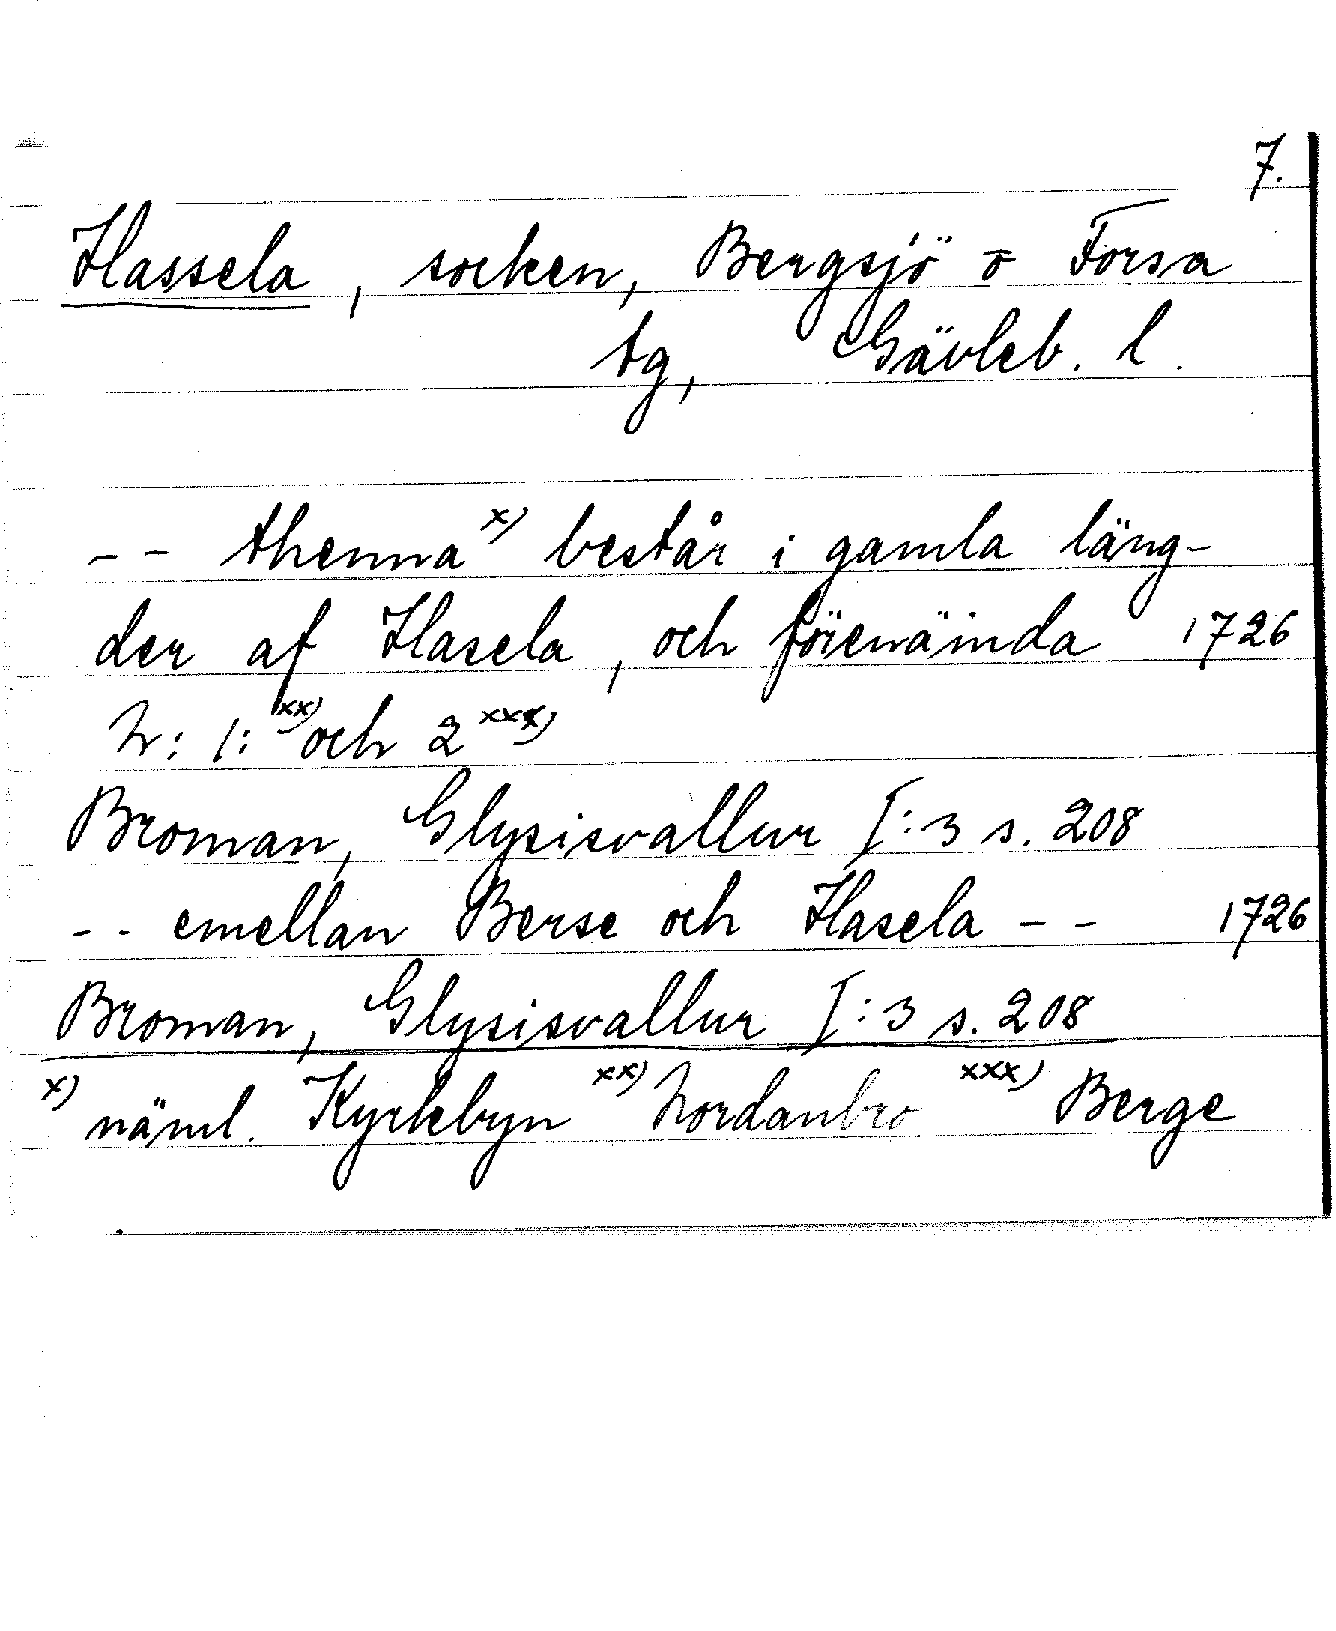 7.
Hassela, socken, Bergsjö o Forsa
tg, Gävleb. l.
-- thenna x) består i gamla läng-
der af Hasela, och förenämda 1726
N: 1: xx) och 2 xxx)
Broman, Glysisvallur I:3 s. 208
-- emellan Berse och Hasela -- 1726
Broman, Glysisvallur I:3 s. 208
x) näml. Kyrkbyn xx) Nordanbro xxx) Berge